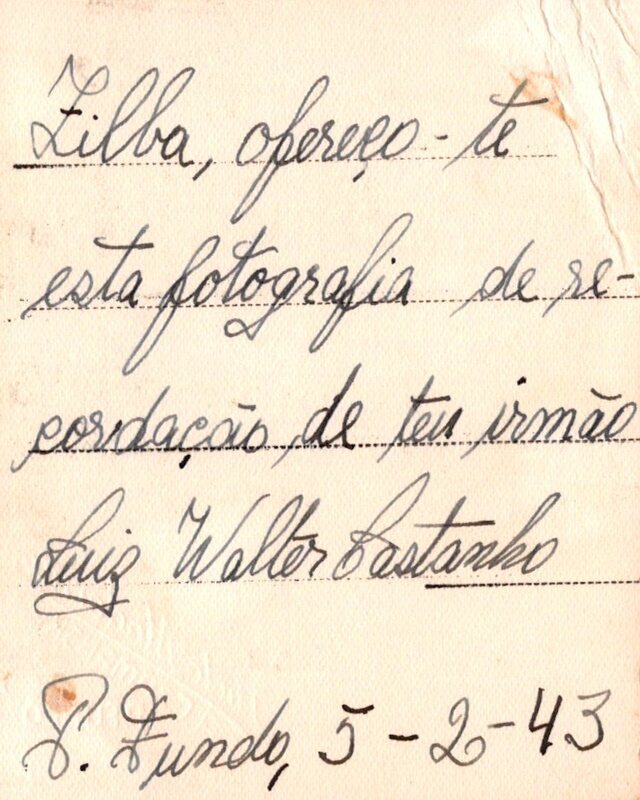 Zilba, ofereço-te
esta fotografia de re-
cordação de teu irmão
Luiz Walter Castanho
P. Fundo, 5-2-43